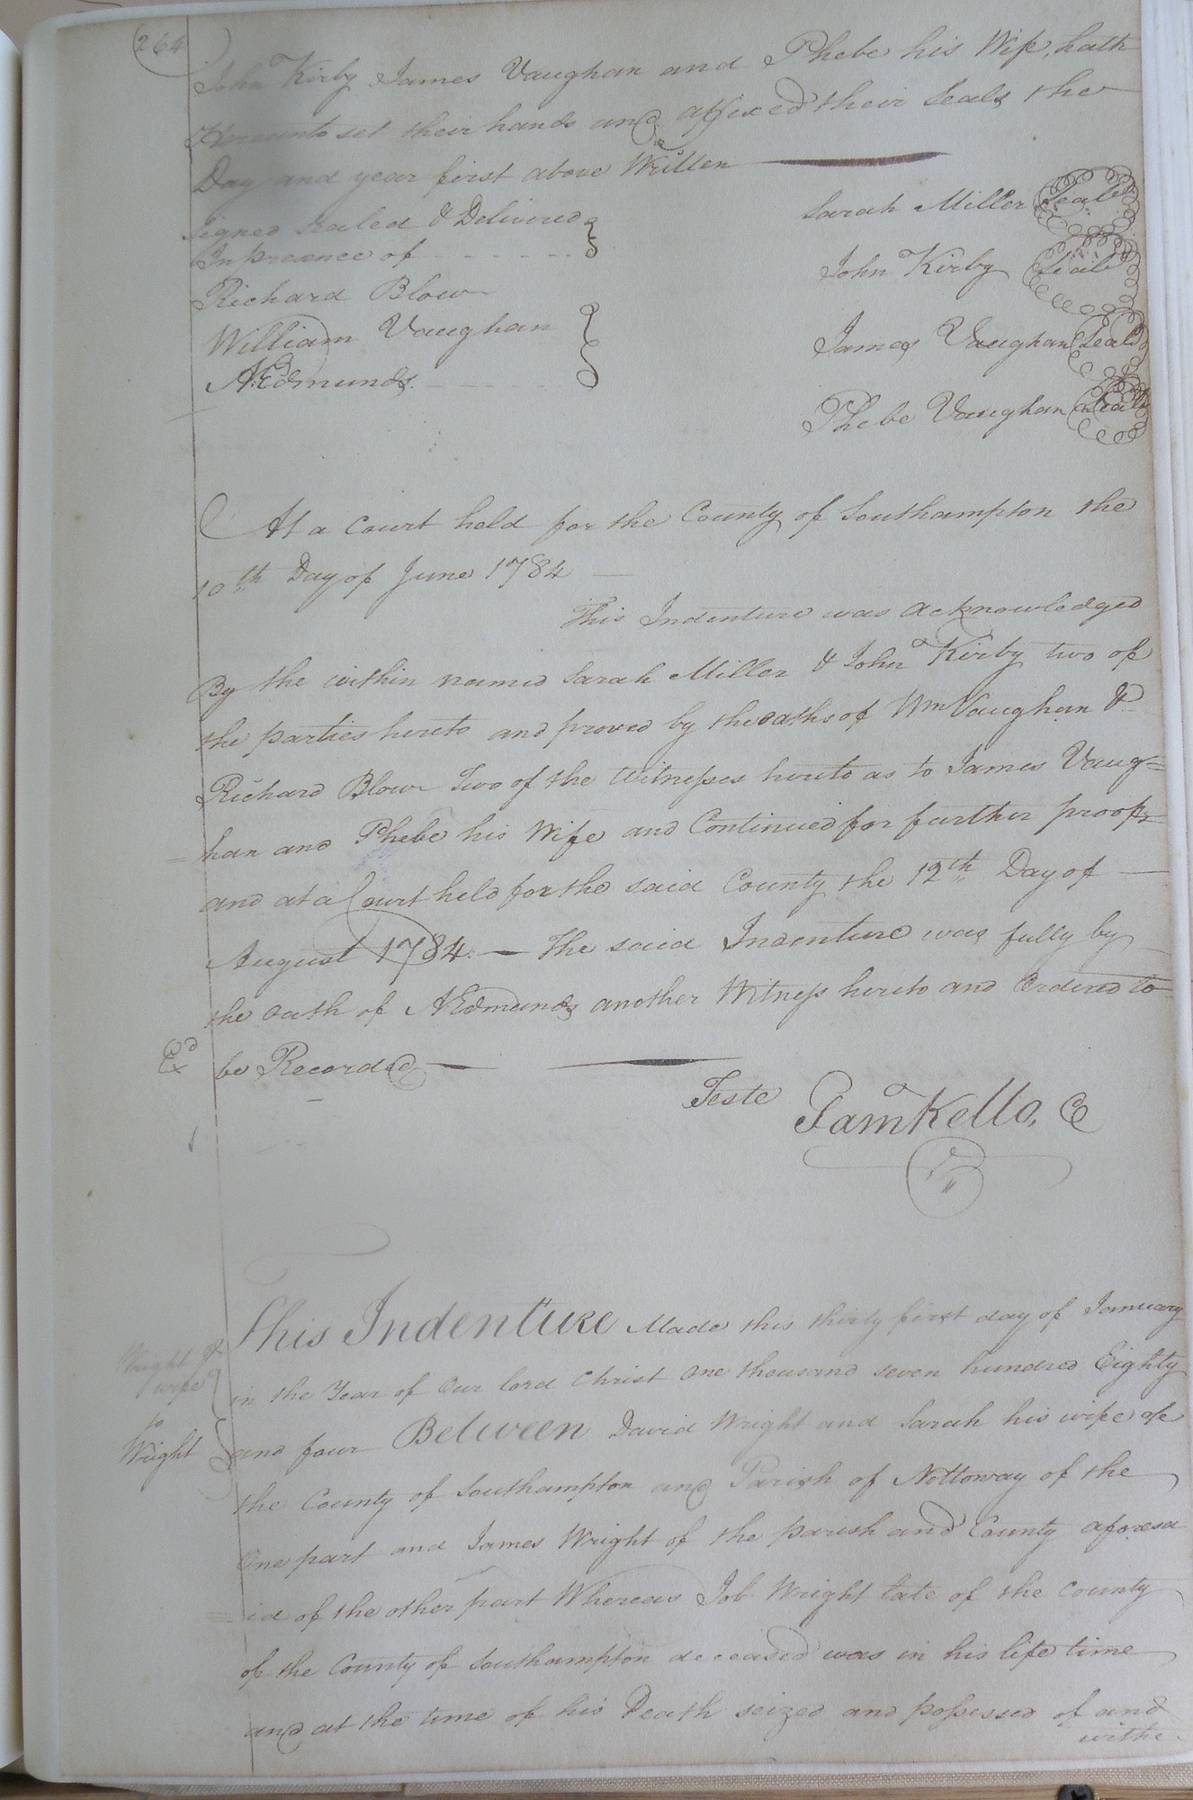 264
John Kirby James Vaughan and Phebe his Wife, hath
Hereunto set their hands and affixed their Seals the
Day and year first above Written
Signed Sealed & Delivered
In presence of
Richard Blow
William Vaughan
A. Edmunds
Sarah Miller Seal
John Kirby Seal
James Vaughan Seal
Phebe Vaughan Seal
At a Court held for the County of Southampton the
10th Day of June 1784
This Indenture was acknowledged
By the within named Sarah Miller & John Kirby two of
the parties hereto and proved by the oaths of Wm Vaughan &
Richard Blow Two of the Witnesses hereto as to James Vaug=
=han and Phebe his Wife and Continued for further proof,
and at a Court held for the said County the 12th Day of
August 1784. — The said Indenture was fully by
the oath of A Edmunds another Witness hereto and Ordered to
Exd be Recorded
Teste Samkello, C
Wright &
wife
to
Wright
This Indenture Made this thirty first day of January
in the Year of Our lord Christ One thousand seven hundred Eighty
and four Between David Wright and Sarah his wife of
the County of Southampton and Parish of Nottoway of the
One part and James Wright of the parish and County aforesa
=id of the other part Whereas Job Wright late of the County
of the County of Southampton deceased was in his life time
and at the time of his Death seized and possessed of and
withe